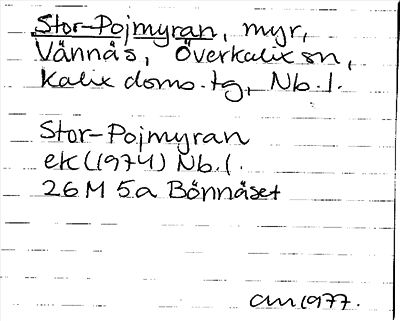 Stor-Pojmyran, myr,
Vännäs, Överkalix sn,
Kalix doms.tg, Nb.l.
Stor-Pojmyran
ek (1974) Nb.l.
26 M 5a Bönnäset
am 1977.